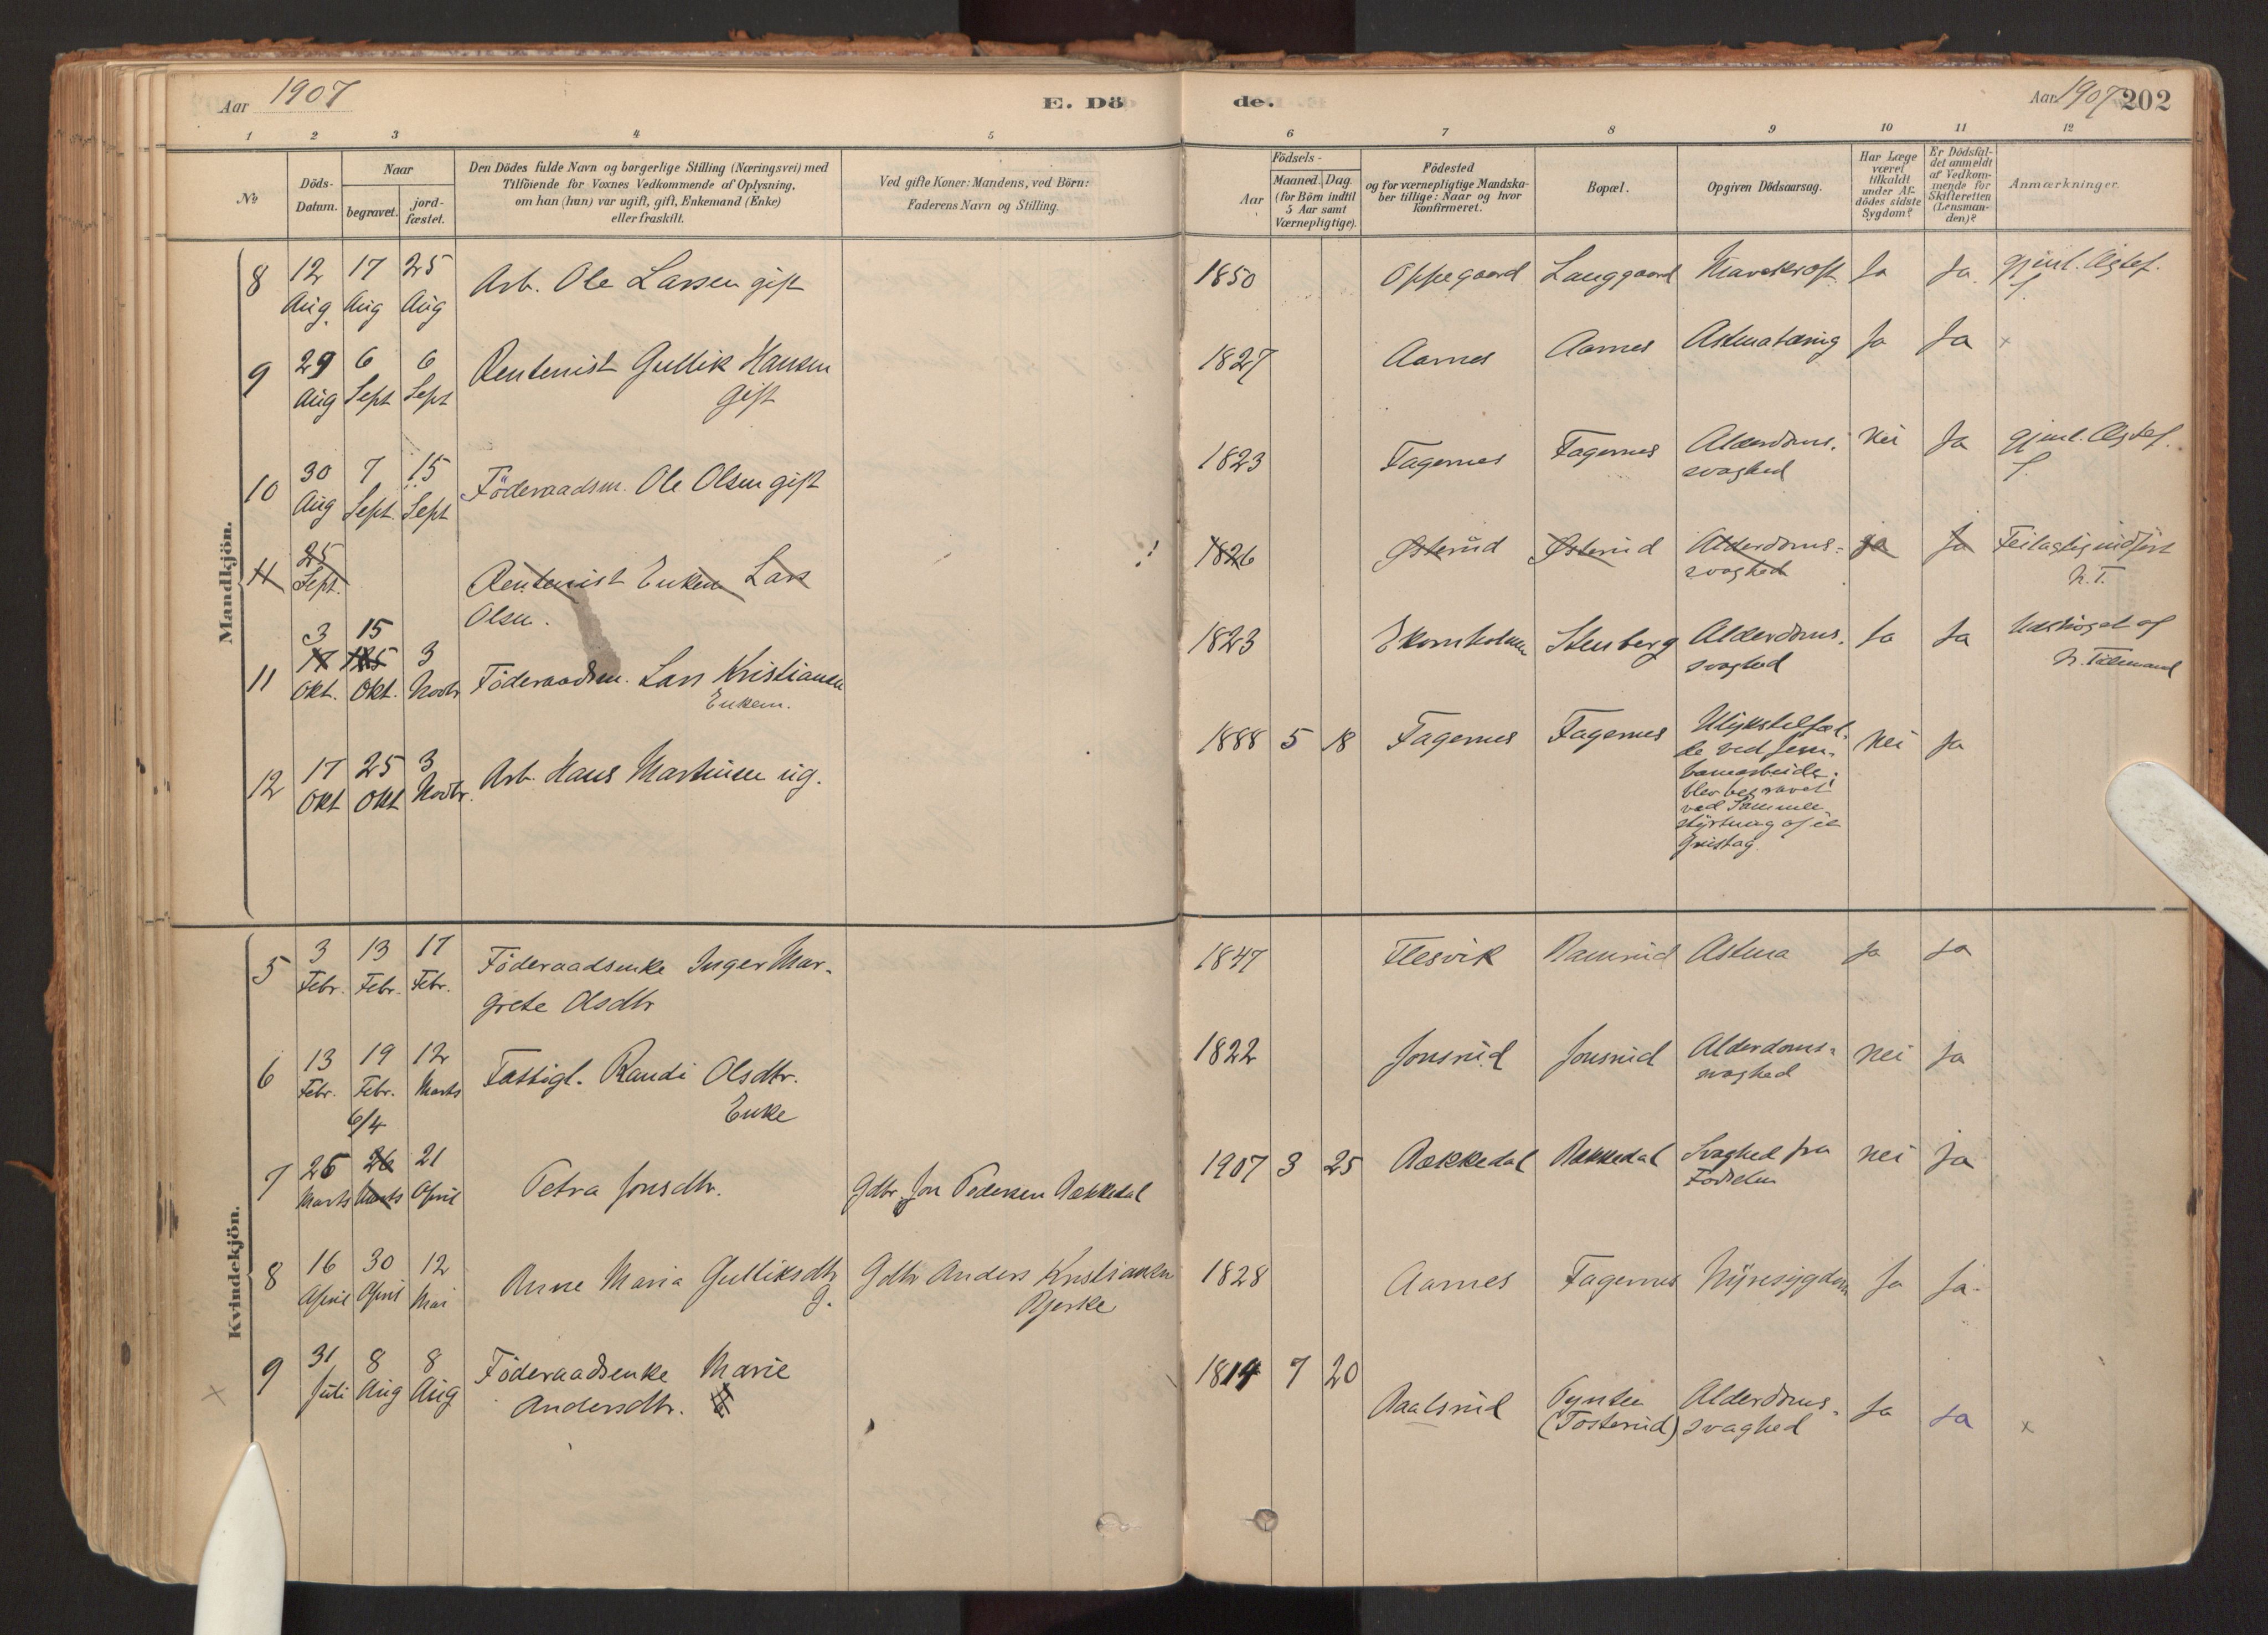 Aar 1907
E. Dö
de.
Aar 1907 202
1 2 3 4 5 6 7 8 9 10 11 12
No
Döds-
Datum.
Naar
begravet.
jord-
fæstet.
Den Dödes fulde Navn og borgerlige Stilling (Næringsvei) med
Tilföiende for Voxnes Vedkommende af Oplysning,
om han (hun) var ugift, gift, Enkemand (Enke)
eller fraskilt.
Ved gifte Koner: Mandens, ved Börn:
Faderens Navn og Stilling.
Födsels-
Aar
Maaned. Dag.
(for Börn indtil
5 Aar samt
Værnepligtige).
Födested
og for værnepligtige Mandska-
ber tillige: Naar og hvor
konfirmeret.
Bopæl.
Opgiven Dödsaarsag.
Har Læge
været
tilkaldt
under Af-
dödes sidste
Sygdom?
Er Dödsfal-
det anmeldt
af Vedkom-
mende for
Skifteretten
(Lensman-
den)?
Anmærkninger.
Mandkjön.
8 12 Aug. 17 Aug 25 Aug Arb. Ole Larsen gift 1850 Oppegaard Langgaard Mavekræft Ja Ja.
9 29 Aug 6 Sept 6 Sept Rentenist Gullik Hansen
gift 1827 Aarnes Aarnes Ja Ja x
10 30 Aug 7 Sept. 15 Sept Föderaadsm. Ole Olsen gift 1823 Fagernes Fagernes Alderdoms-
svaghed Nei Ja
11 25 Sept. Rentenist Enkem Lars
Olsen. 1826 Østerud Østerud Alderdoms-
svaghed ja Ja Feilagtig indført
N.T.
11 3 17 Okt. 15 Okt. 3 Novbr Föderaadsm. Lars Kristiansen
Enkem. 1823 Ekornholmen Stensberg Alderdoms-
svaghed Ja Ja
12 17 Okt 25 Okt 3 Novbr. Arb. Hans Martinsen ug. 1888 5 18 Fagernes Fagernes Ulykstilfæl-
de ved Jern-
banearbeide;
blev begravet
ved Sammen-
styrtning af et
Grustag. Nei Ja
Kvindekjön.
5 3 Febr. 13 Febr. 17 Febr. Föderaadsenke Inger Mar-
grete Olsdtr 1847 Flesvik Ramrud Astma Ja Ja
6 13 Febr. 19 Febr. 12 Marts Fattigl. Randi Olsdtr.
Enke 1822 Jonsrud Jonsrud Alderdoms-
svaghed Nei Ja
7 25 Marts 6/4 26 Marts 21 April Petra Jonsdtr. Gdbr. Jon Pedersen Rækkedal 1907 3 25 Rækkedal Rækkedal Svaghed fra
Fødselen Nei Ja
8 16 April 30 April 12 Mai Anne Maria Gulliksdtr
g. Gdbr Anders Kristiansen
Bjerke 1828 Aarnes Fagernes Nyresygdom Ja Ja.
x 9 31 Juli 8 Aug 8 Aug Föderaadsenke Marie
Andersdtr. 1814 7 20 Paalsrud Pynten
(Tosterud) Alderdoms-
svaghed Ja Ja x